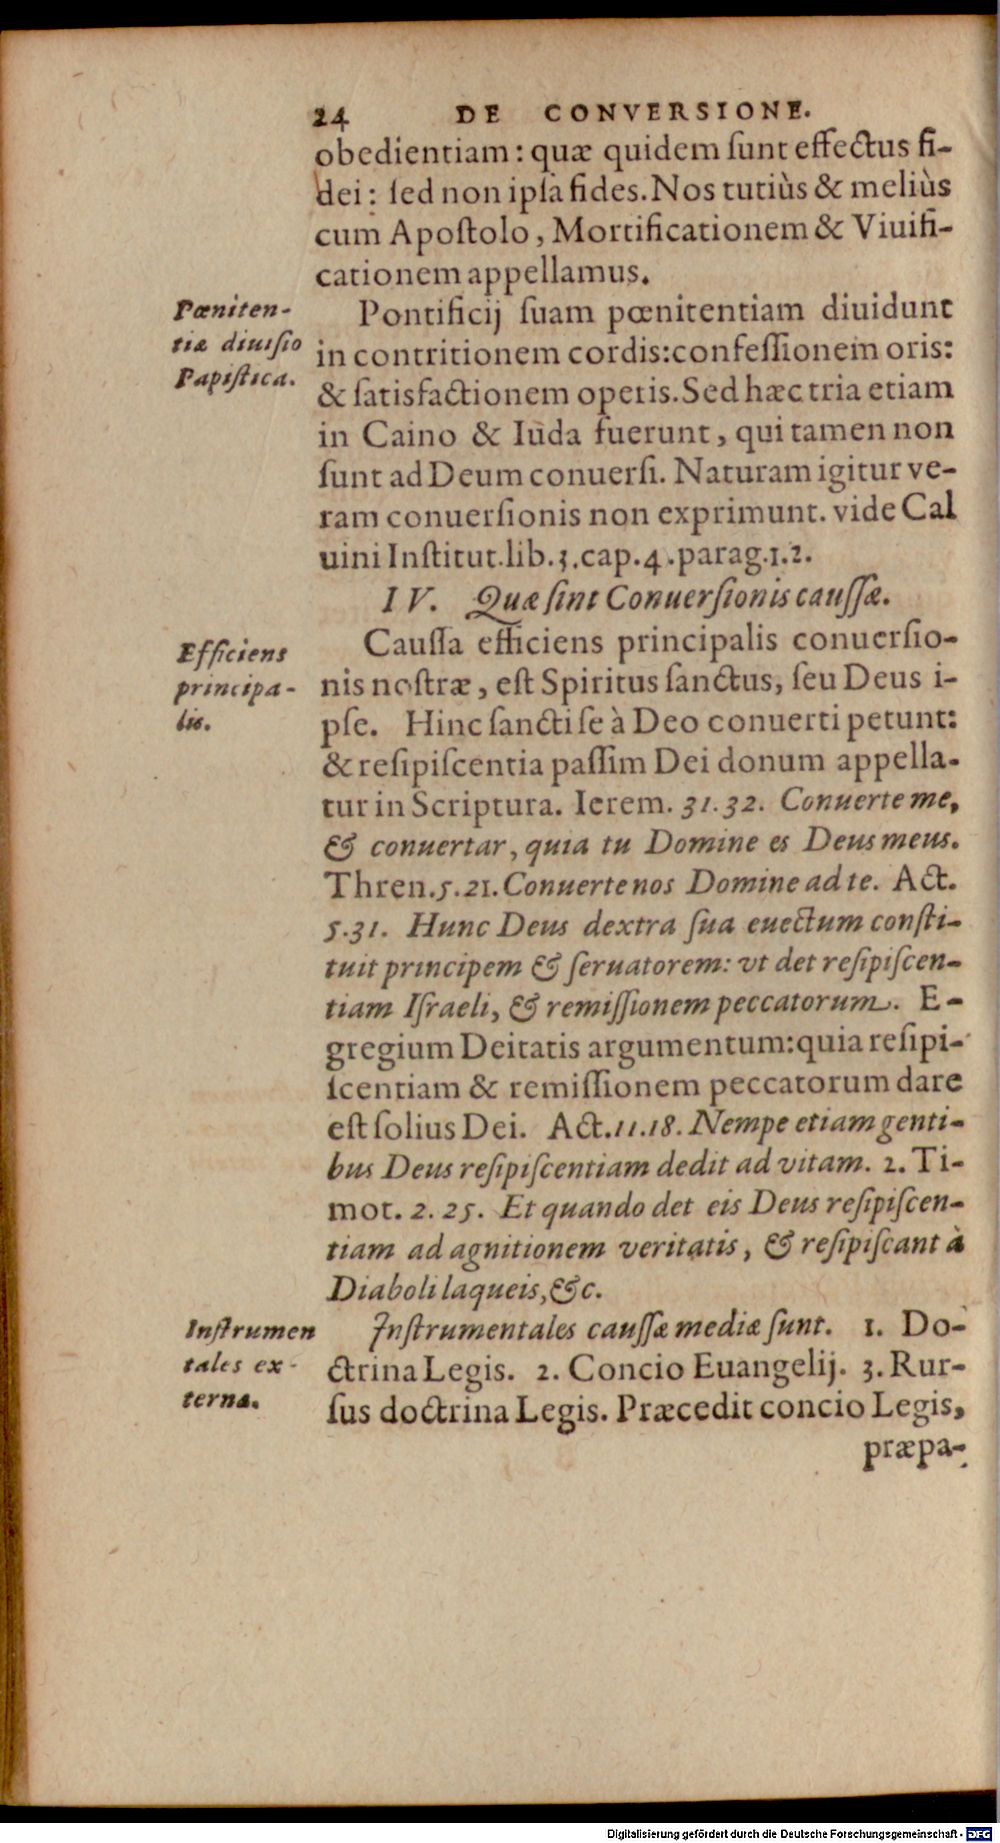 24 DE CONVERSIONE.
obedientiam: quæ quidem ſunt effectus fi-
dei: ſed non ipſa fides. Nos tutiùs & meliùs
cum Apoſtolo, Mortificationem & Viuifi-
cationem appellamus.
Pœniten-
tiæ diuiſio
Papiſtica.
Pontificij ſuam pœnitentiam diuidunt
in contritionem cordis: confeſſionem oris:
& ſatisfactionem operis. Sed hæc tria etiam
in Caino & Iuda fuerunt, qui tamen non
ſunt ad Deum conuerſi. Naturam igitur ve-
ram conuerſionis non exprimunt. vide Cal
uini Inſtitut. lib. 3. cap. 4. parag. 1. 2.
IV. Quæ ſint Conuerſionis cauſſæ.
Efficiens
principa-
lis.
Cauſſa efficiens principalis conuerſio-
nis noſtræ, eſt Spiritus ſanctus, ſeu Deus i-
pſe. Hinc ſancti ſe à Deo conuerti petunt:
& reſipiſcentia paſſim Dei donum appella-
tur in Scriptura. Ierem. 31. 32. Conuerte me,
& conuertar, quia tu Domine es Deus meus.
Thren. 5. 21. Conuerte nos Domine ad te. Act.
5. 31. Hunc Deus dextra ſua euectum conſti-
tuit principem & ſeruatorem: vt det reſipiſcen-
tiam Iſraeli, & remiſſionem peccatorum. E-
gregium Deitatis argumentum: quia reſipi-
ſcentiam & remiſſionem peccatorum dare
eſt ſolius Dei. Act. 11. 18. Nempe etiam genti-
bus Deus reſipiſcentiam dedit ad vitam. 2. Ti-
mot. 2. 25. Et quando det eis Deus reſipiſcen-
tiam ad agnitionem veritatis, & reſipiſcant à
Diaboli laqueis, &c.
Inſtrumen
tales ex-
terna.
Inſtrumentales cauſſæ mediæ ſunt. 1. Do-
ctrina Legis. 2. Concio Euangelij. 3. Rur-
ſus doctrina Legis. Præcedit concio Legis,
præpa-
Digitalisierung gefördert durch die Deutsche Forschungsgemeinschaft - DFG